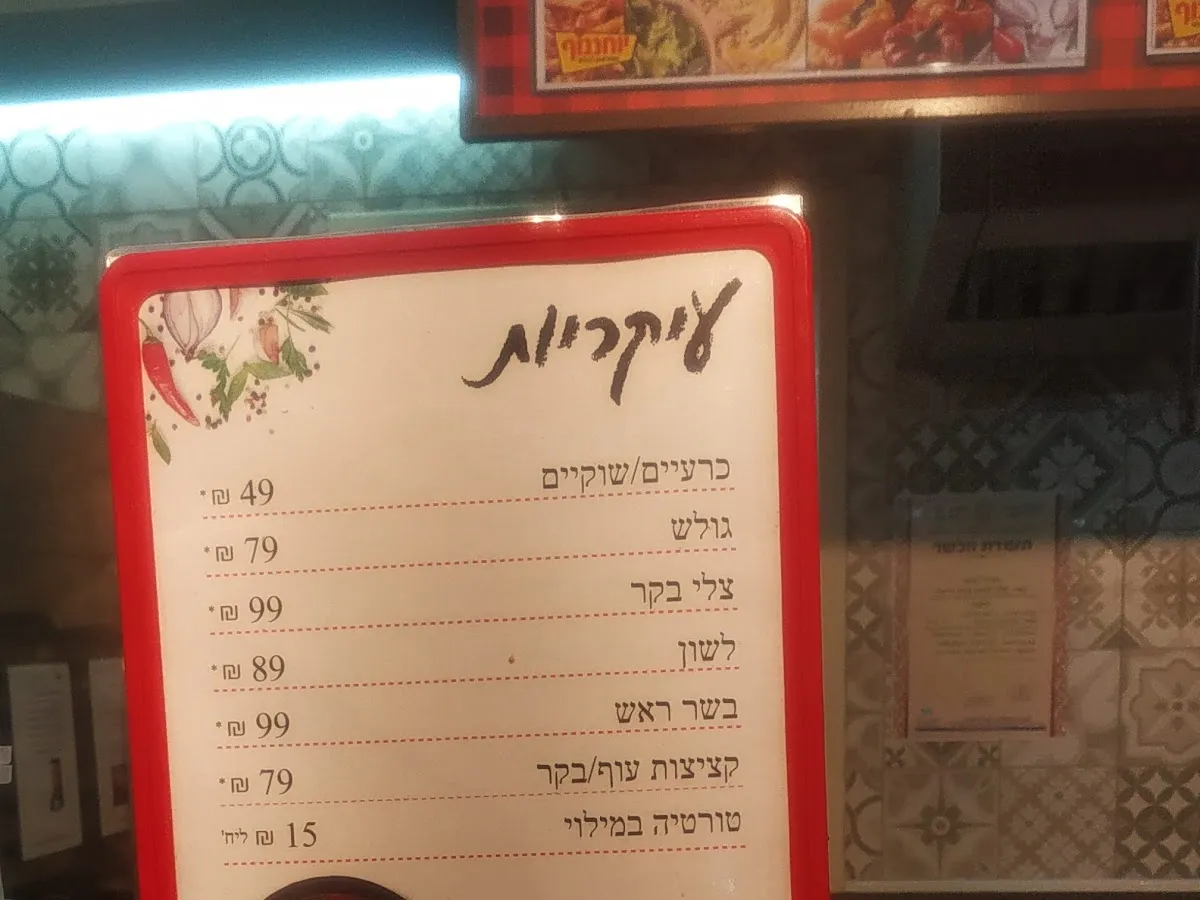 יוחננוף
עיקריות
כרעיים/שוקיים 49 ₪*
גולש 79 ₪*
צלי בקר 99 ₪*
לשון 89 ₪*
בשר ראש 99 ₪*
קציצות עוף/בקר 79 ₪*
טורטיה במילוי 15 ₪ ליח'
תעודת הכשר